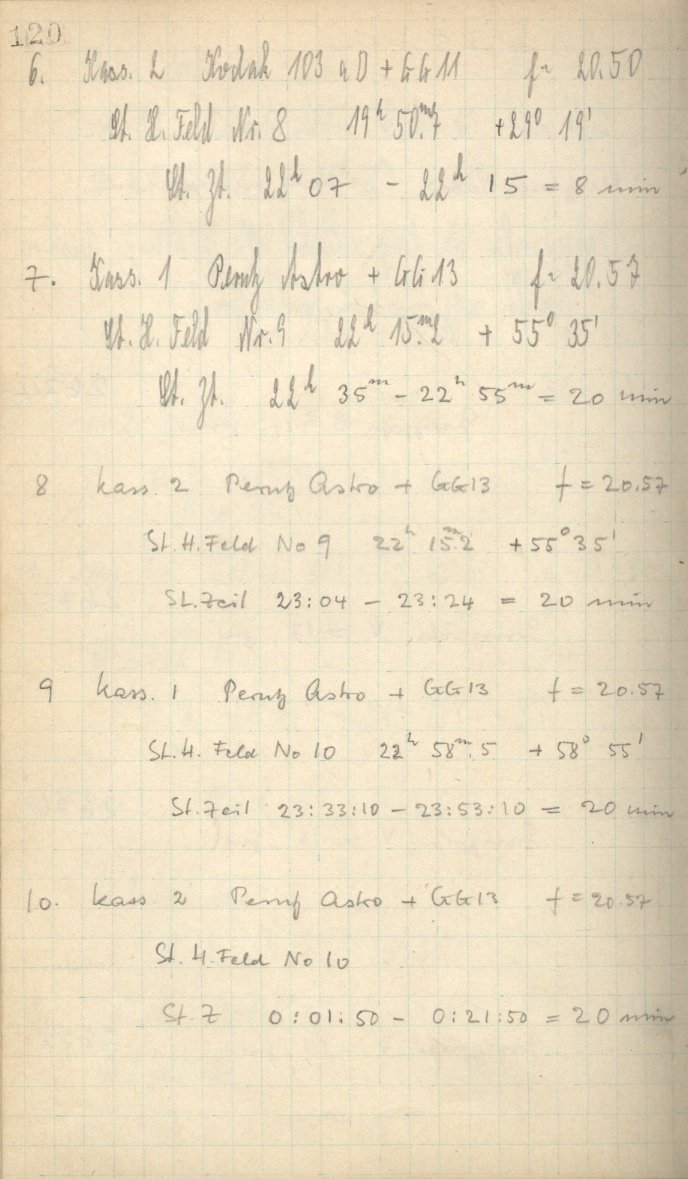 120
6. Kass. 2 Kodak 103 aD + GG 11 f = 20.50
St. H. Feld Nr. 8 19ʰ 50.ᵐ7 +29° 19'
St. Zt. 22ʰ 07 - 22ʰ 15 = 8 min
7. Kass. 1 Perutz Astro + GG 13 f = 20.57
St. H. Feld Nr. 9 22ʰ 15.ᵐ2 + 55° 35'
St. Zt. 22ʰ 35ᵐ - 22ʰ 55ᵐ = 20 min
8 Kass. 2 Perutz Astro + GG13 f = 20.57
St. H. Feld No 9 22ʰ 15.ᵐ2 +55° 35'
St. Zeit 23:04 - 23:24 = 20 min
9 Kass. 1 Perutz Astro + GG13 f = 20.57
St. H. Feld No 10 22ʰ 58ᵐ.5 + 58° 55'
St. Zeit 23:33:10 - 23:53:10 = 20 min
10. Kass 2 Perutz Astro + GG13 f = 20.57
St. H. Feld No 10
St. Z 0:01:50 - 0:21:50 = 20 min